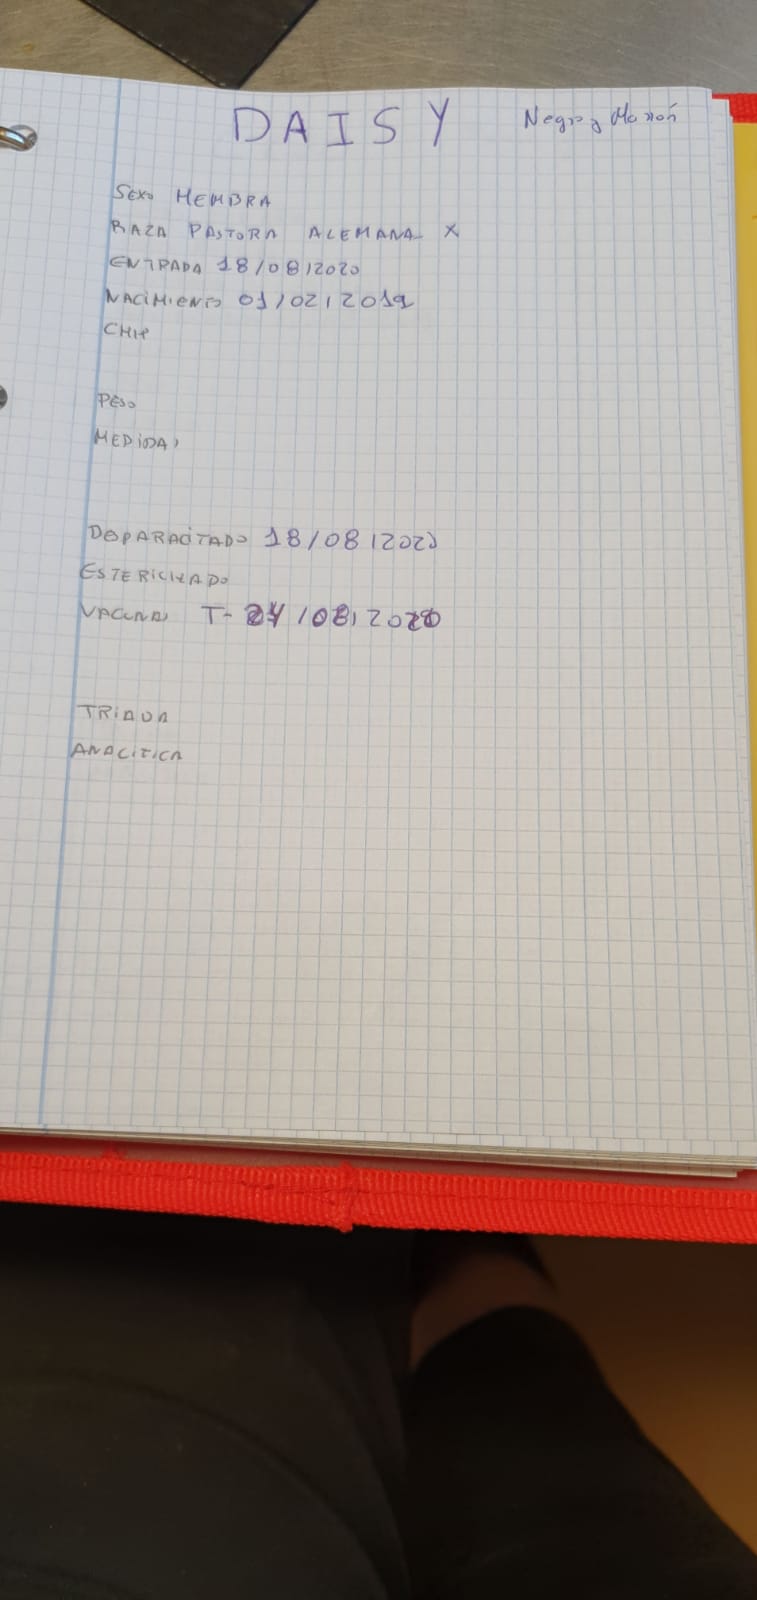 DAISY
Negro y Marrón
SEXO HEMBRA
RAZA PASTORA ALEMANA X
ENTRADA 18/08/2020
NACIMIENTO 01/02/2019
CHIP
PESO
MEDIDAS
DESPARACITADO 18/08/2020
ESTERICIZADO
VACUNAS T- /08/2020
TRIADA
ANALITICA